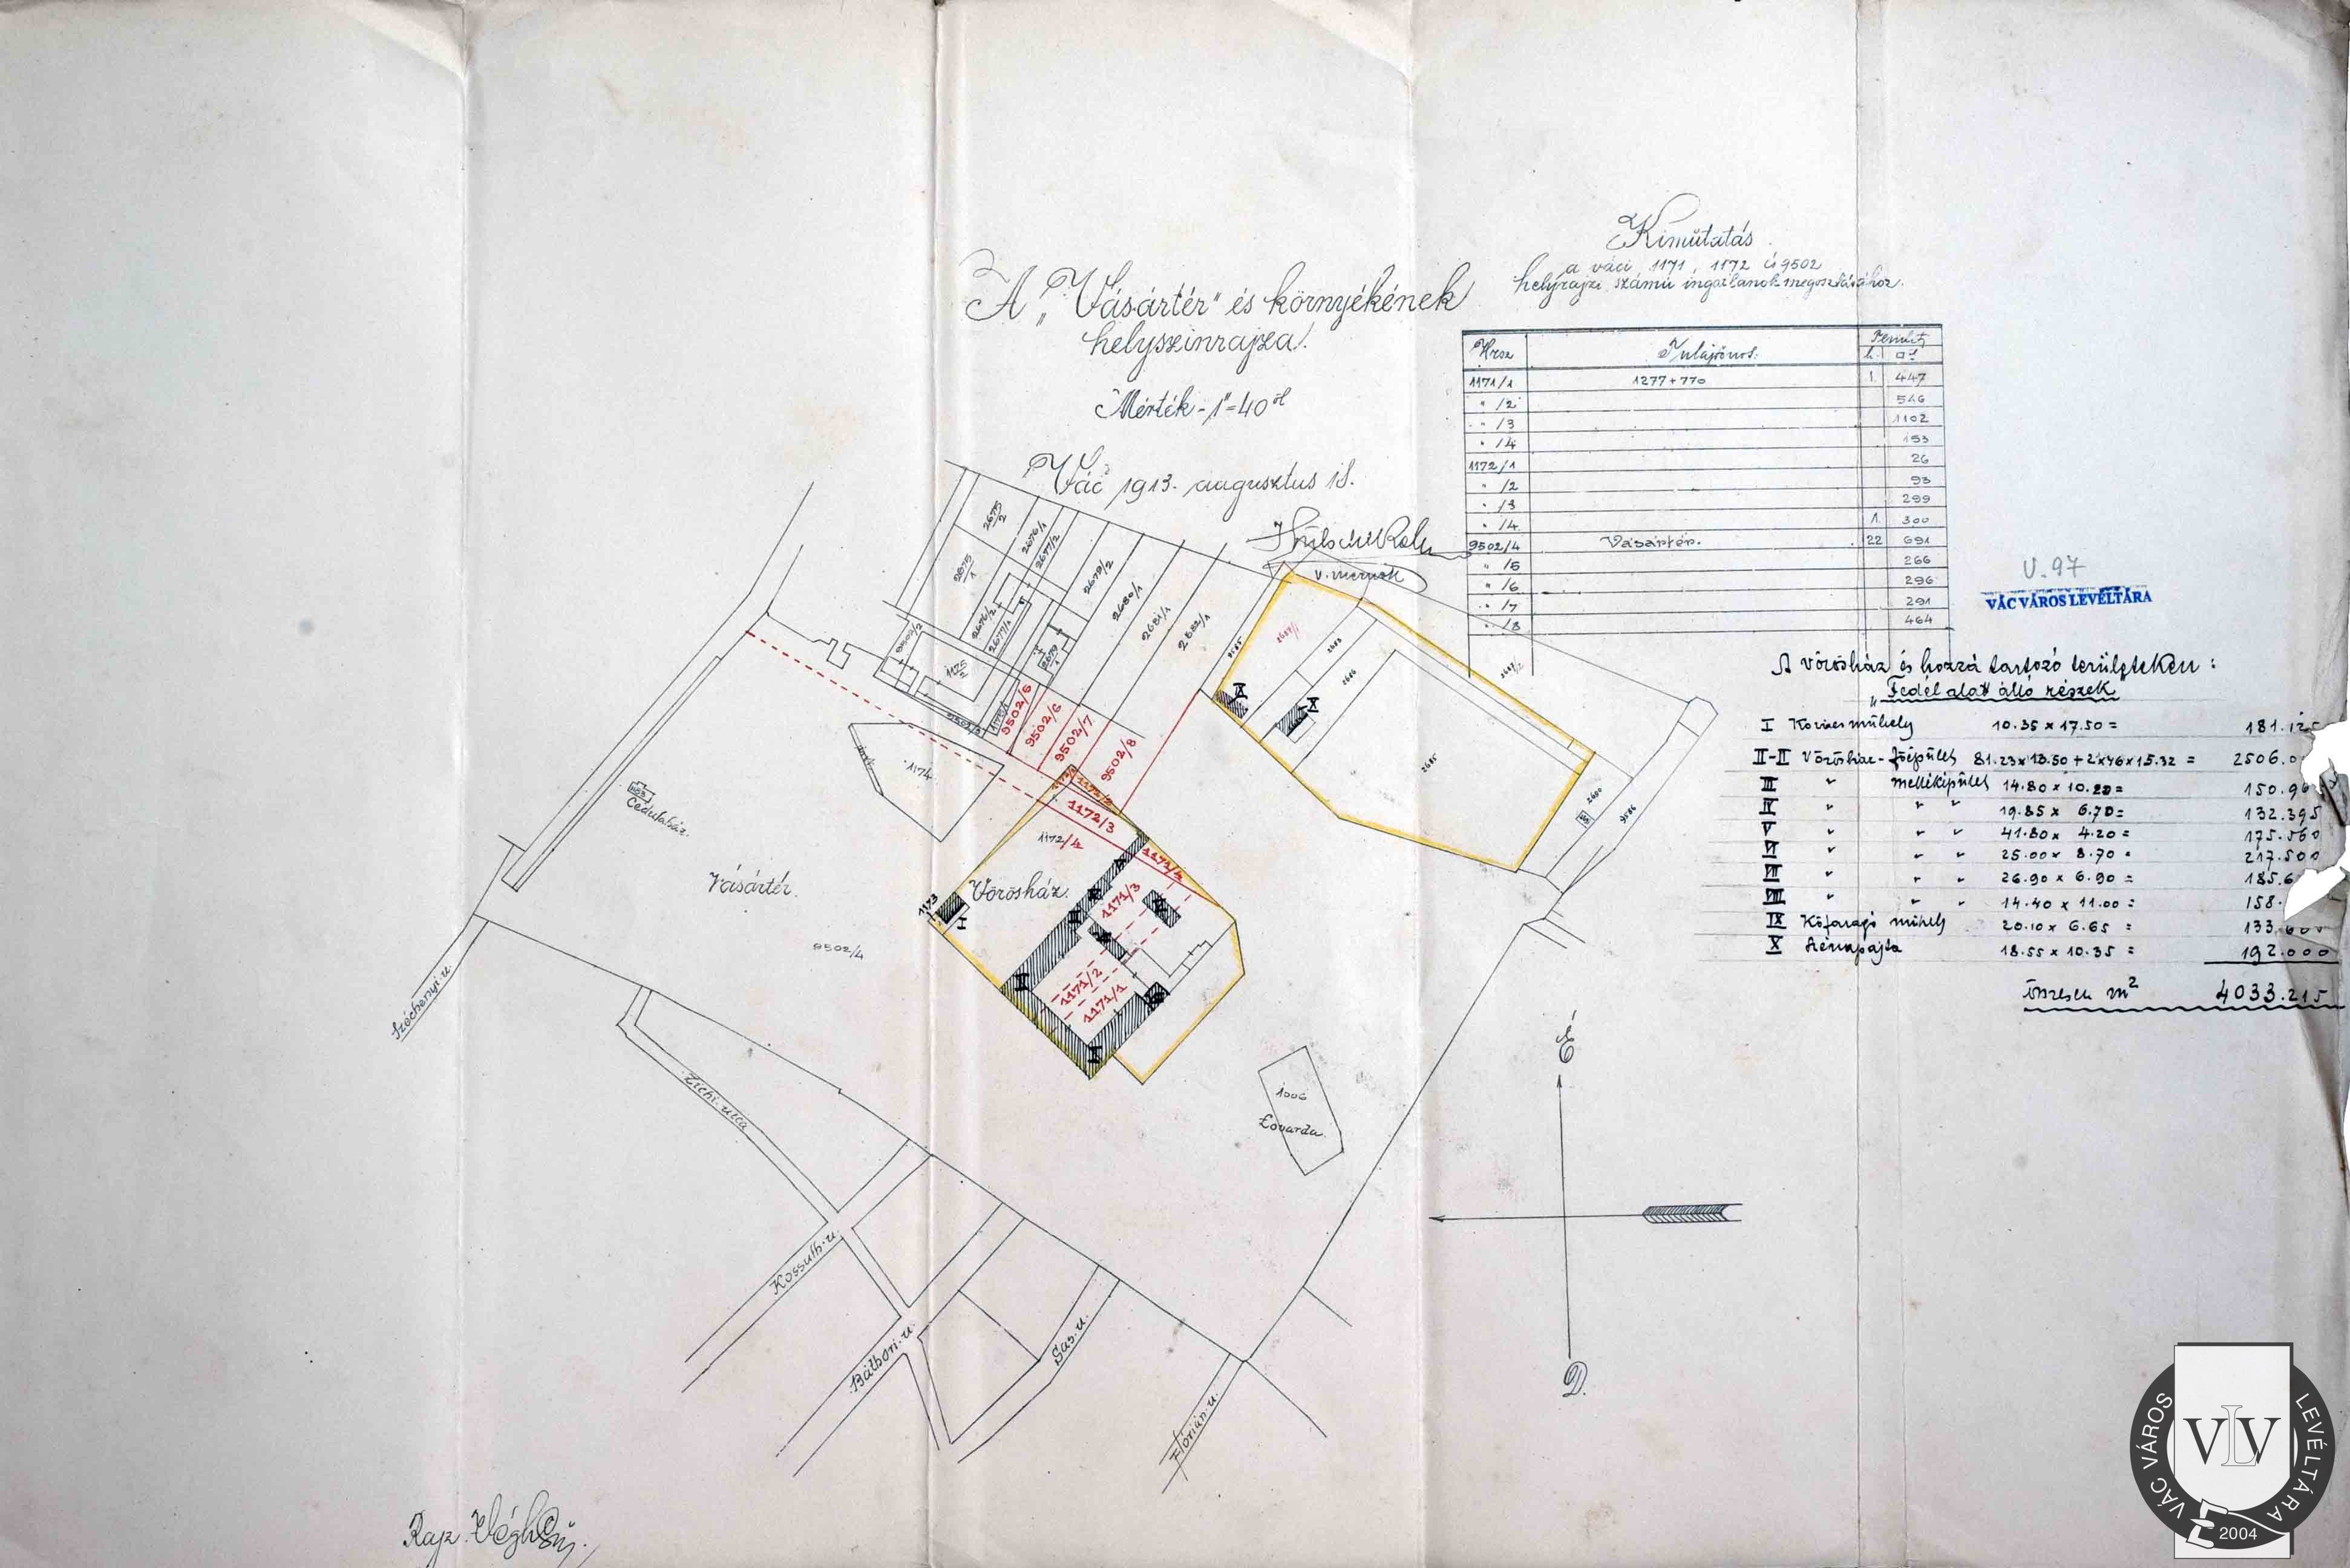 A „Vásártér" és környékének
helyszinrajza.
Mérték - 1"=40 öl
Vác 1913. augusztus 18.
v. mérnök
Kimutatás
a váci 1171, 1172 és 9502
helyrajzi számú ingatlanok megosztásához.
Hrsz Tulajdonos.
h. □öl
1171/1 1277+770 1. 447
" /2 546
" /3 1102
" /4 153
1172/1 26
" /2 93
" /3 299
" /4 1. 300
9502/4 Vásártér. 22 691
" /5 266
" /6 296
" /7 291
" /8 464
V. 97
VÁC VÁROS LEVÉLTÁRA
A vörösház és hozzá tartozó területeken:
„Fedél alatt álló részek"
I Kovácsműhely 10.35 x 17.50 = 181.125
II-II Vörösház-főépület 81.23x13.50+2x46x15.32 = 2506.0
III " melléképület 14.80 x 10.20 = 150.96
IV " " " 19.85 x 6.70 = 132.395
V " " " 41.80 x 4.20 = 175.560
VI " " " 25.00 x 8.70 = 217.500
VII " " " 26.90 x 6.90 = 185.6
VIII " " " 14.40 x 11.00 = 158.
IX Kőfaragó műhely 20.10 x 6.65 = 133.600
X Szénapajta 18.55 x 10.35 = 192.000
összesen m² 4033.215
2675/2
2675/1
2676/1
2677/2
2676/2
2677/1
2679/2
2679/1
2680/1
2681/1
2682/1
9502/2
1175/2
9502/3
1175/1
9502/5
9502/6
9502/7
9502/8
9585
2687/1
2688
2686
2687/2
2685
2690
9586
IX
X
1174
1172/1
1172/2
1172/3
1172/4
1171/4
Cédulaház.
Vásártér.
9502/4
1173
I
Vörösház.
1171/3
1171/2
1171/1
II
II
1006
Lovarda.
É
D.
Széchenyi u.
Zichi utca
Kossuth u.
Báthori u.
Sas u.
Flórián u.
Rajz.
VÁC VÁROS LEVÉLTÁRA
VLV
2004